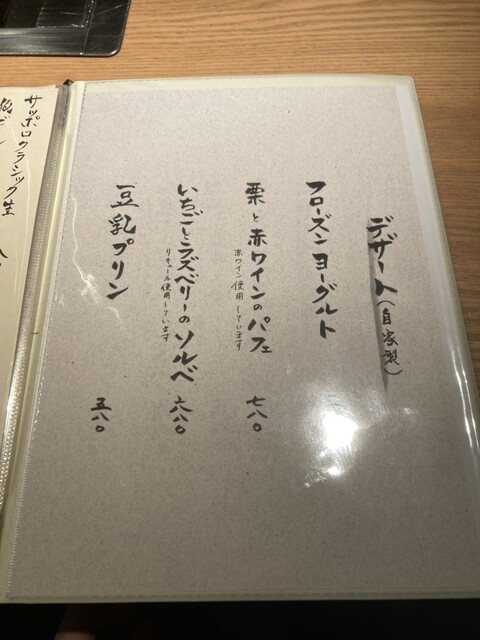 デザート(自家製)
フローズンヨーグルト
栗と赤ワインのパフェ 七八〇
赤ワイン使用しています
いちごとラズベリーのソルベ 六八〇
リキュール使用しています
豆乳プリン 五八〇
サッポロクラシック生